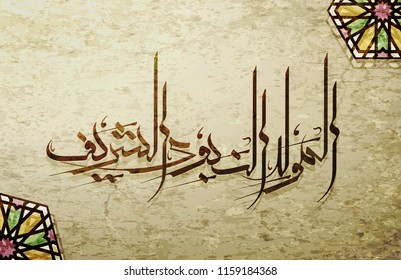 المولد النبوي الشريف
shutterstock.com · 1159184368